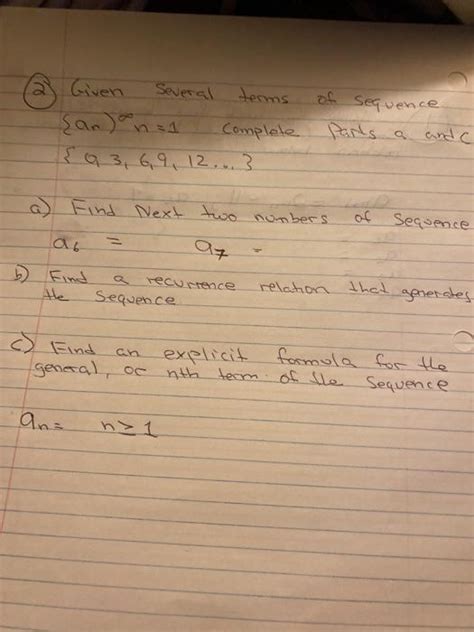 2) Given Several terms of sequence
{an)∞ n=1 Complete Parts a and c
{ 0, 3, 6, 9, 12 ... }
a) Find Next two numbers of Sequence
a6 = a7 =
b) Find a recurrence relation that generates
the Sequence
c) Find an explicit formula for the
general, or nth term of the Sequence
an= n≥1